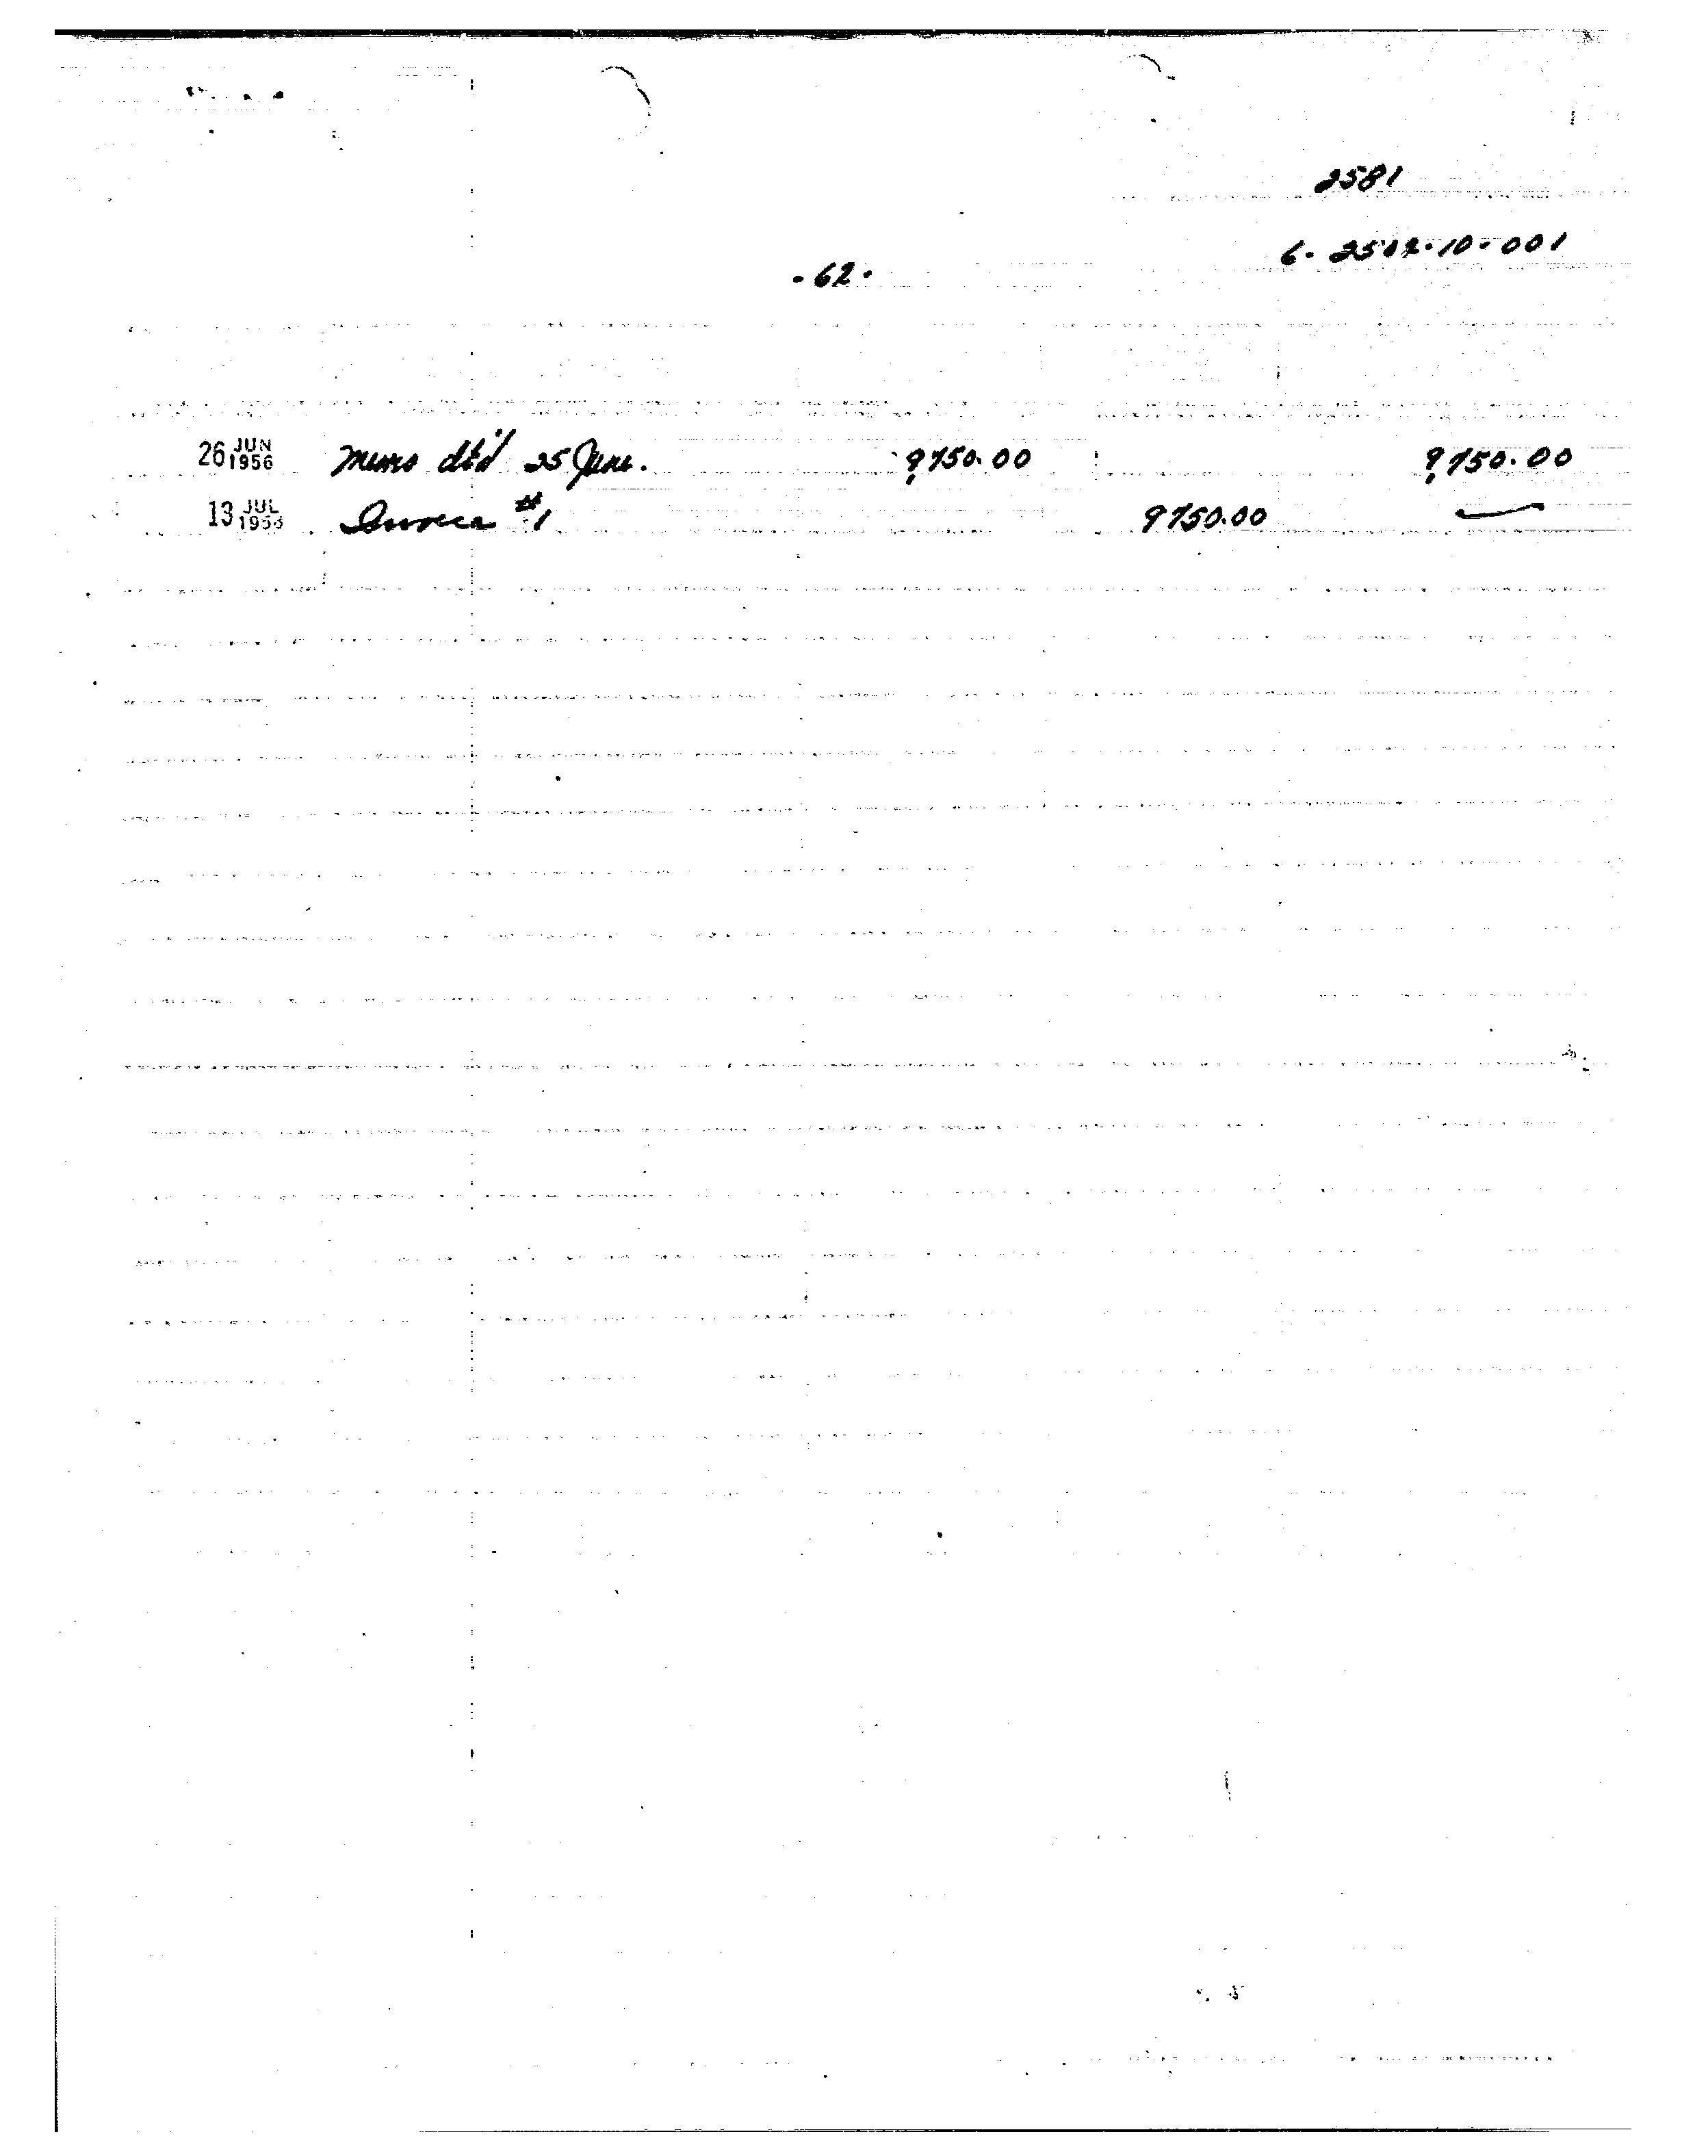 2581
6. 2502.10.001
.62.
26 JUN 1956 Memo dt'd 25 June. 9,750.00 9,750.00
13 JUL Invoice #1 9750.00 —